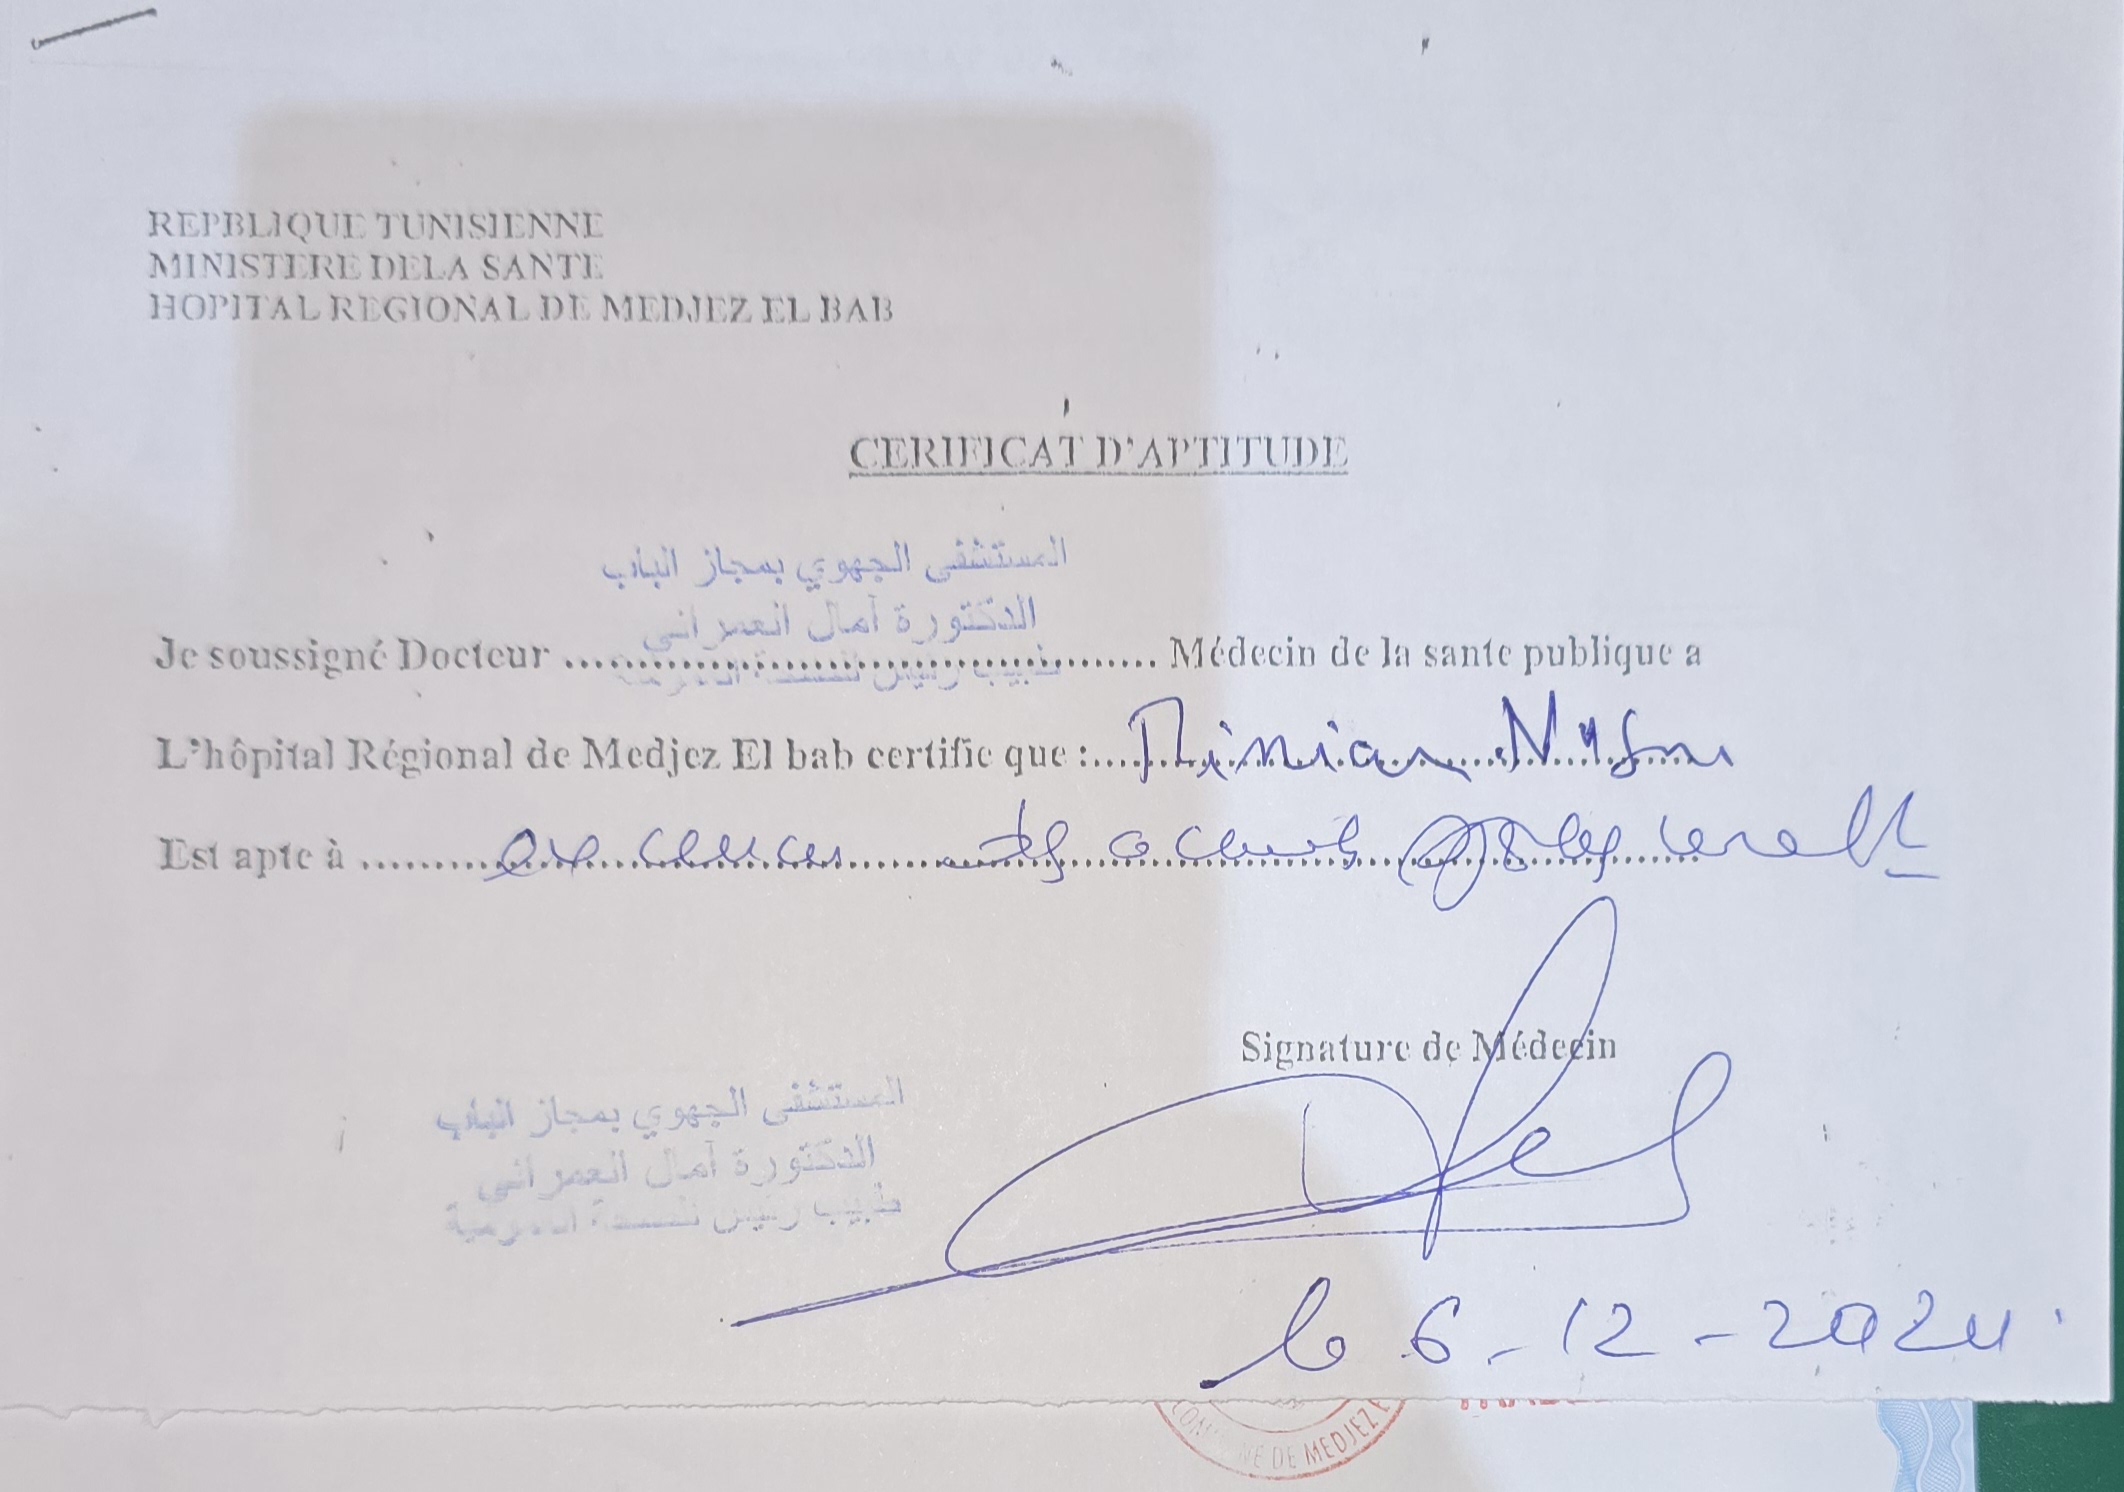 REPBLIQUE TUNISIENNE
MINISTERE DELA SANTE
HOPITAL REGIONAL DE MEDJEZ EL BAB
CERIFICAT D'APTITUDE
المستشفى الجهوي بمجاز الباب
الدكتورة آمال العمراني
طبيب رئيس للصحة العمومية
Je soussigné Docteur ........................................ Médecin de la sante publique a
L'hôpital Régional de Medjez El bab certifie que :
Est apte à
Signature de Médecin
المستشفى الجهوي بمجاز الباب
الدكتورة آمال العمراني
طبيب رئيس للصحة العمومية
le 6-12-2024
COMMUNE DE MEDJEZ E